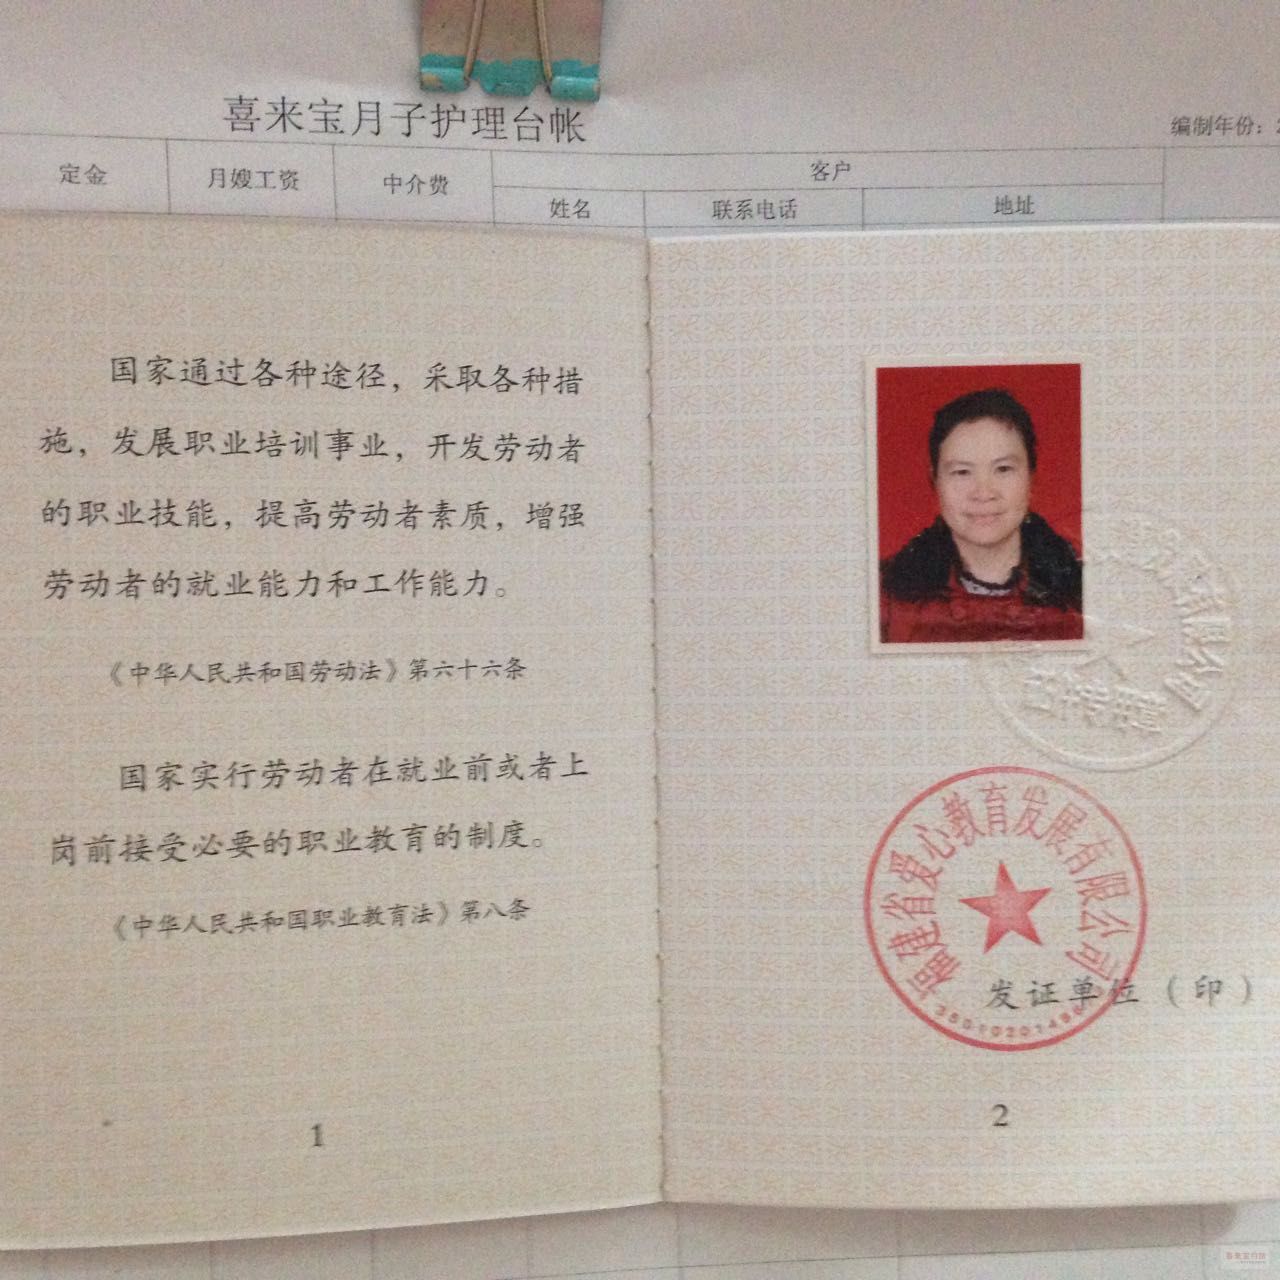 喜来宝月子护理台帐
编制年份：2
定金 月嫂工资 中介费 客户
姓名 联系电话 地址
国家通过各种途径，采取各种措
施，发展职业培训事业，开发劳动者
的职业技能，提高劳动者素质，增强
劳动者的就业能力和工作能力。
《中华人民共和国劳动法》第六十六条
国家实行劳动者在就业前或者上
岗前接受必要的职业教育的制度。
《中华人民共和国职业教育法》第八条
1
福建省爱心教育发展有限公司
发证单位（印）
2